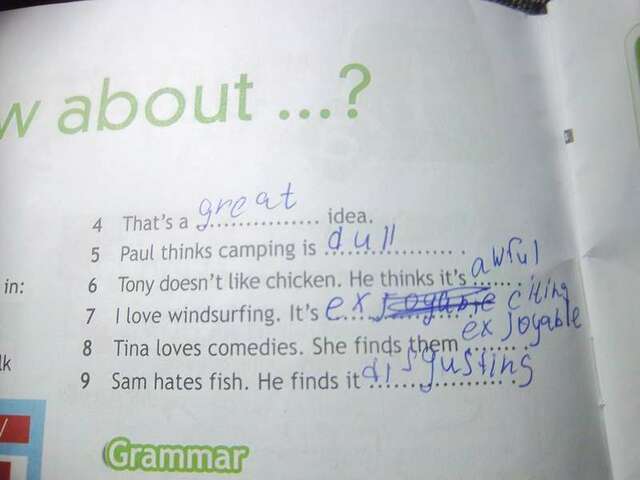 w about ...?
4 That's a great idea.
5 Paul thinks camping is dull.
in:
6 Tony doesn't like chicken. He thinks it's awful.
7 I love windsurfing. It's exciting
8 Tina loves comedies. She finds them exjoyable
lk
9 Sam hates fish. He finds it disgusting.
Grammar